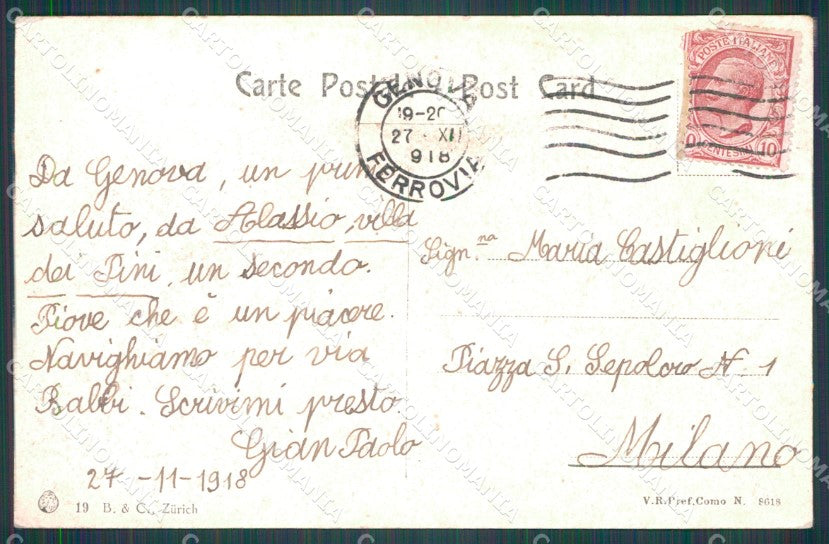 Carte Postale Post Card
GENOVA
19-20
27 · XII
918
FERROVIA
POSTE ITALIANE
10
Da Genova, un primo
saluto, da Alassio, villa
dei Pini, un secondo.
Piove che è un piacere.
Navighiamo per via
Balbi. Scrivimi presto.
Gian Paolo
27-11-1918
Sign.na Maria Castiglioni
Piazza S. Sepolcro N. 1
Milano
19 B. & C., Zürich
V.R.Pref.Como N. 8618
CARTOLINOMANIA